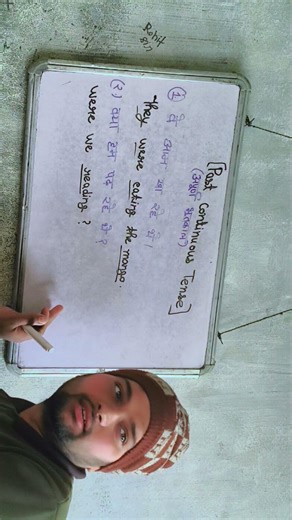 Rohit
[Past Continuous Tense]
(अपूर्ण भूतकाल)
(1) वे आम खा रहे थे।
they were eating the mango.
(२) क्या हम पढ़ रहे थे?
were we reading?